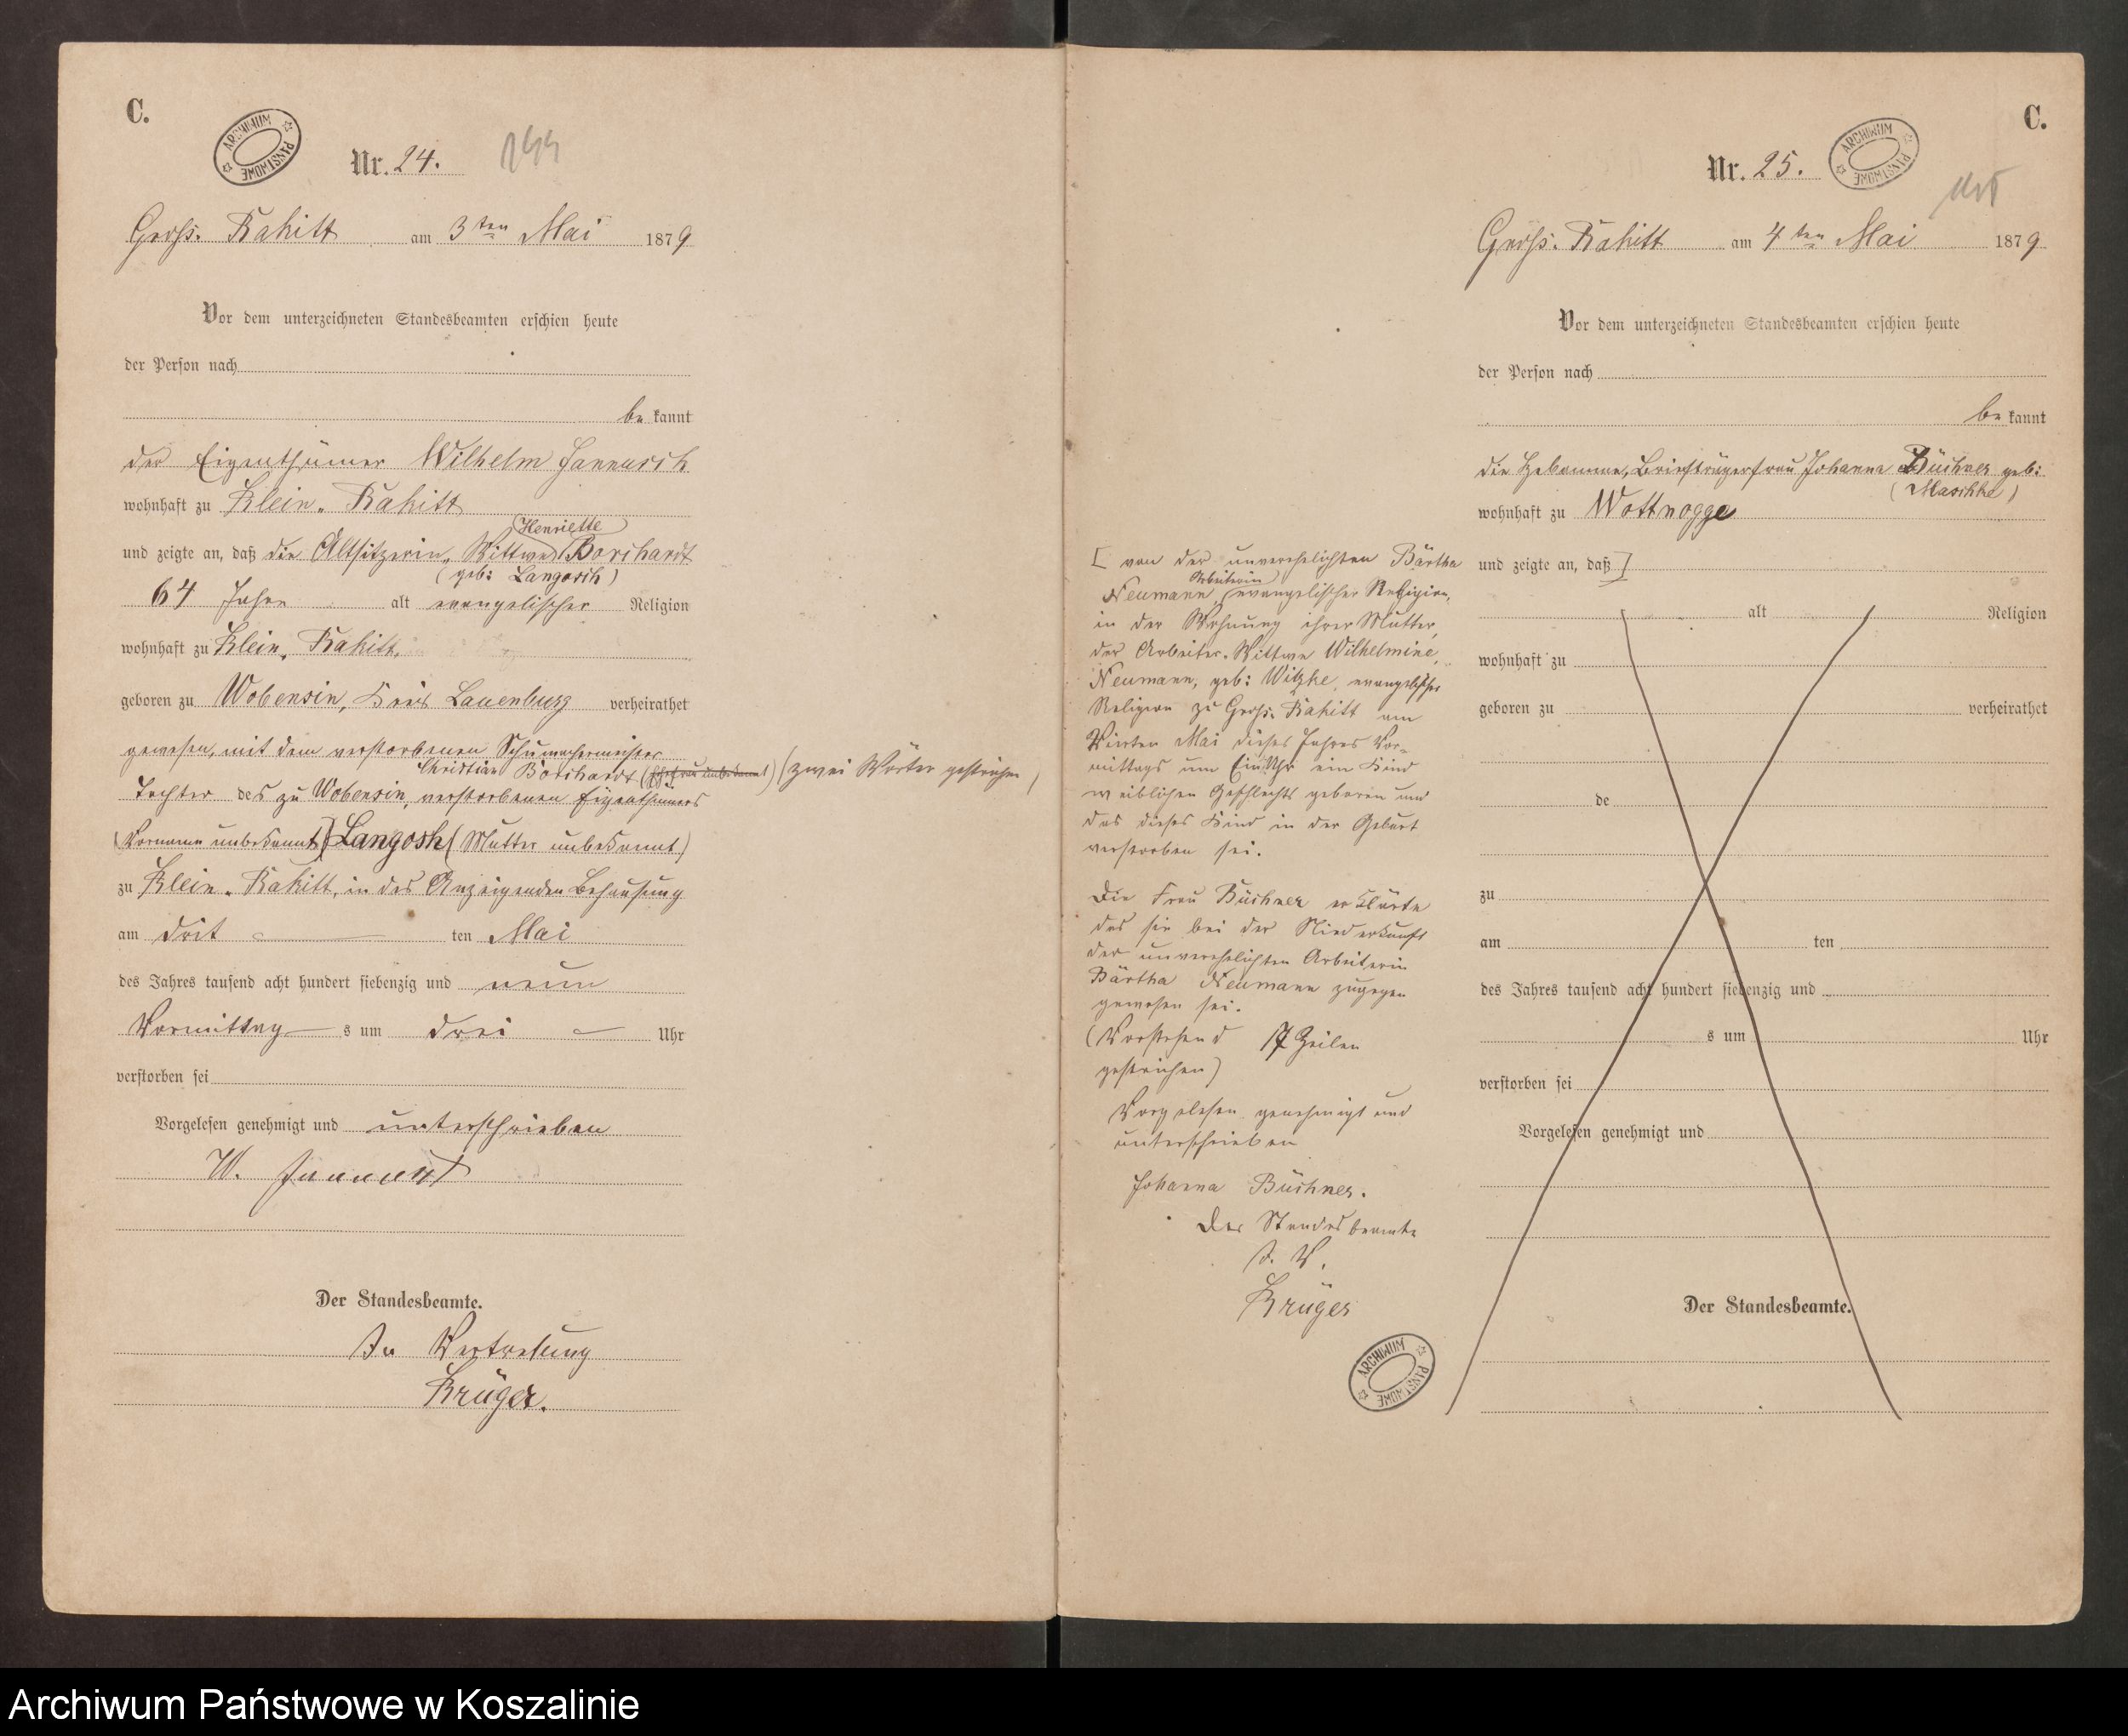 C.
ARCHIWUM PAŃSTWOWE
Nr. 24.
Groß. Rakitt am 3ten Mai 1879
Vor dem unterzeichneten Standesbeamten erschien heute
der Person nach
be kannt
der Eigenthümer Wilhelm Jannusch
wohnhaft zu Klein. Rakitt
Henriette
und zeigte an, daß die Altsitzerin, Wittwe Borchardt
(geb: Langosch)
64 Jahre alt evangelischer Religion
wohnhaft zu Klein, Rakitt,
geboren zu Wobensin, Kreis Lauenburg verheirathet
gewesen, mit dem verstorbenen Schumachermeister
Christian Borchardt (zwei Wörter gestrichen)
Tochter des zu Wobensin, verstorbenen Eigenthümers
(Vorname unbekannt) Langosh (Mutter unbekannt)
zu Klein. Rakitt, in des Anzeigenden Behausung
am drit ten Mai
des Jahres tausend acht hundert siebenzig und neun
Vormittag s um drei Uhr
verstorben sei
Vorgelesen genehmigt und unterschrieben
W. Jannusch
Der Standesbeamte.
In Vertretung
Krüger.
C.
ARCHIWUM PAŃSTWOWE
Nr. 25.
Groß. Rakitt am 4ten Mai 1879
Vor dem unterzeichneten Standesbeamten erschien heute
der Person nach
be kannt
die Hebamme, Briefträgerfrau Johanna Büchner geb:
(Maschke)
wohnhaft zu Wottnogge
und zeigte an, daß]
alt Religion
wohnhaft zu
geboren zu verheirathet
de
zu
am ten
des Jahres tausend acht hundert siebenzig und
s um Uhr
verstorben sei
Vorgelesen genehmigt und
Der Standesbeamte.
[ von der unverehelichten Bärtha
Arbeiterin
Neumann, evangelischer Religion,
in der Wohnung ihrer Mutter,
der Arbeiter. Wittwe Wilhelmine,
Neumann, geb: Witzke, evangelischer
Religion zu Groß. Rakitt am
Vierten Mai dieses Jahres Vor-
mittags um Ein Uhr ein Kind
weiblichen Geschlechts geboren und
das dieses Kind in der Geburt
verstorben sei.
Die Frau Büchner erklärte
das sie bei der Niederkunft
der unverehelichten Arbeiterin
Bärtha Neumann zugegen
gewesen sei.
(Vorstehend 17 Zeilen
gestrichen)
Vorgelesen genehmigt und
unterschrieben
Johanna Büchner.
Der Standesbeamte
I. V.
Krüger
ARCHIWUM PAŃSTWOWE
Archiwum Państwowe w Koszalinie